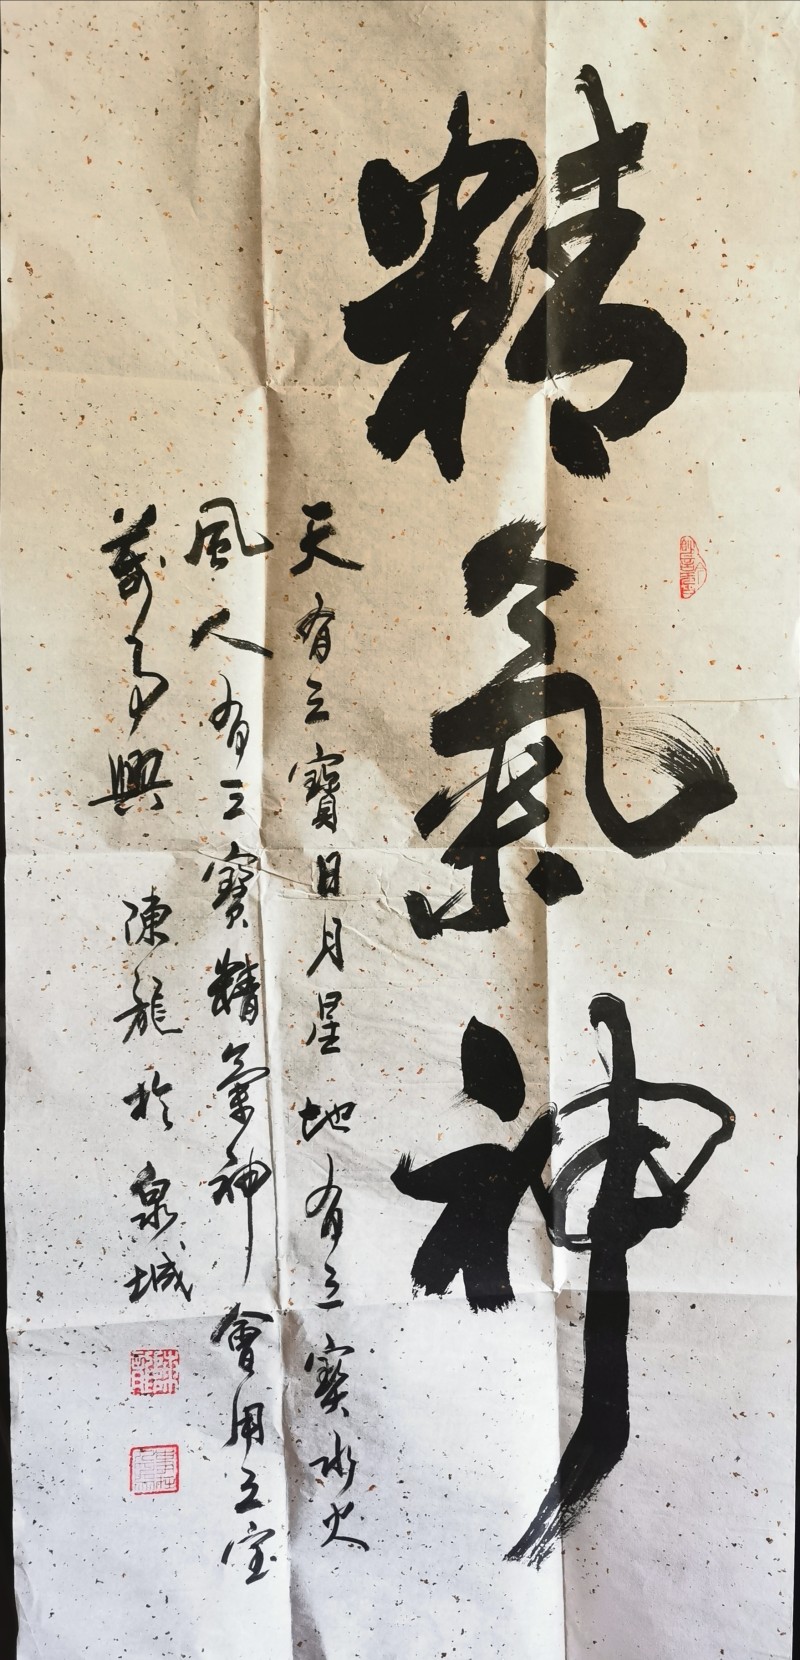 精氣神
天有三寶日月星地有三寶水火
風人有三寶精氣神會用三宝
萬事興
陳龍於泉城